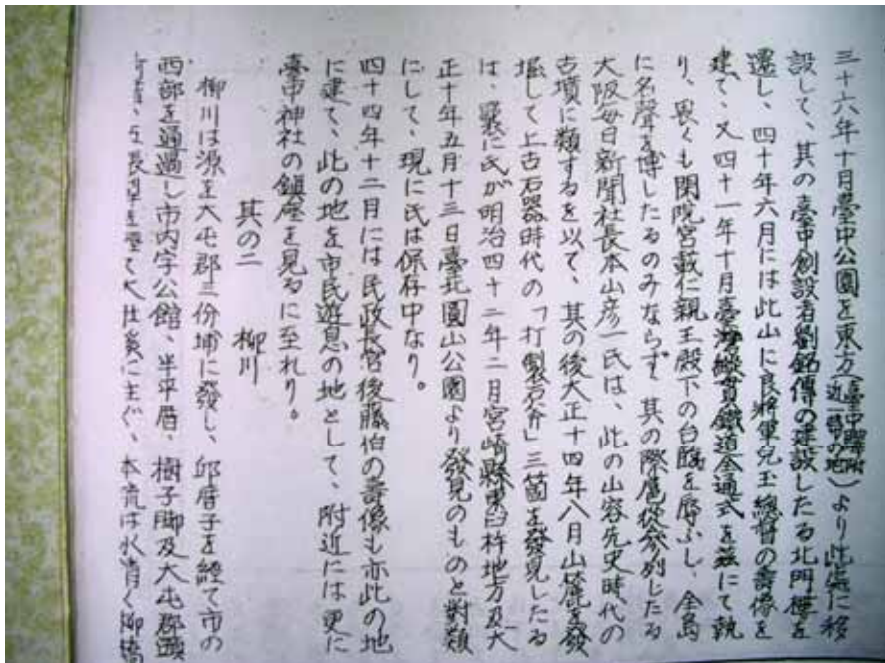 三十六年十月臺中公園を東方(臺中驛附近一帶の地)より此處に移
設して、其の臺中創設者劉銘傳の建設したる北門樓を
遷し、四十年六月には此山に良將軍兒玉總督の壽像を
建て、又四十一年十月臺灣縱貫鐵道全通式を茲にて執
り、畏くも閑院宮載仁親王殿下の台臨を辱ふし、全島
に名聲を博したるのみならず、其の際扈從參列したる
大阪每日新聞社長本山彥一氏は、此の山容先史時代の
古墳に類するを以て、其の後大正十四年八月山麓を發
掘して上古石器時代の「打製石斧」三箇を發見したる
は、曩に氏が明治四十二年二月宮崎縣東臼杵地方及大
正十年五月十三日臺北圓山公園より發見のものと對類
にして、現に氏は保存中なり。
四十四年十二月には民政長官後藤伯の壽像も亦此の地
に建て、此の地を市民遊息の地として、附近には更に
臺中神社の鎮座を見るに至れり。
其の二 柳川
柳川は源を大屯郡三份埔に發し、邱厝子を經て市の
西部を通過し市內字公館、半平厝、樹子脚及大屯郡
を經て大肚溪に主ぐ、本流は水清く柳橋